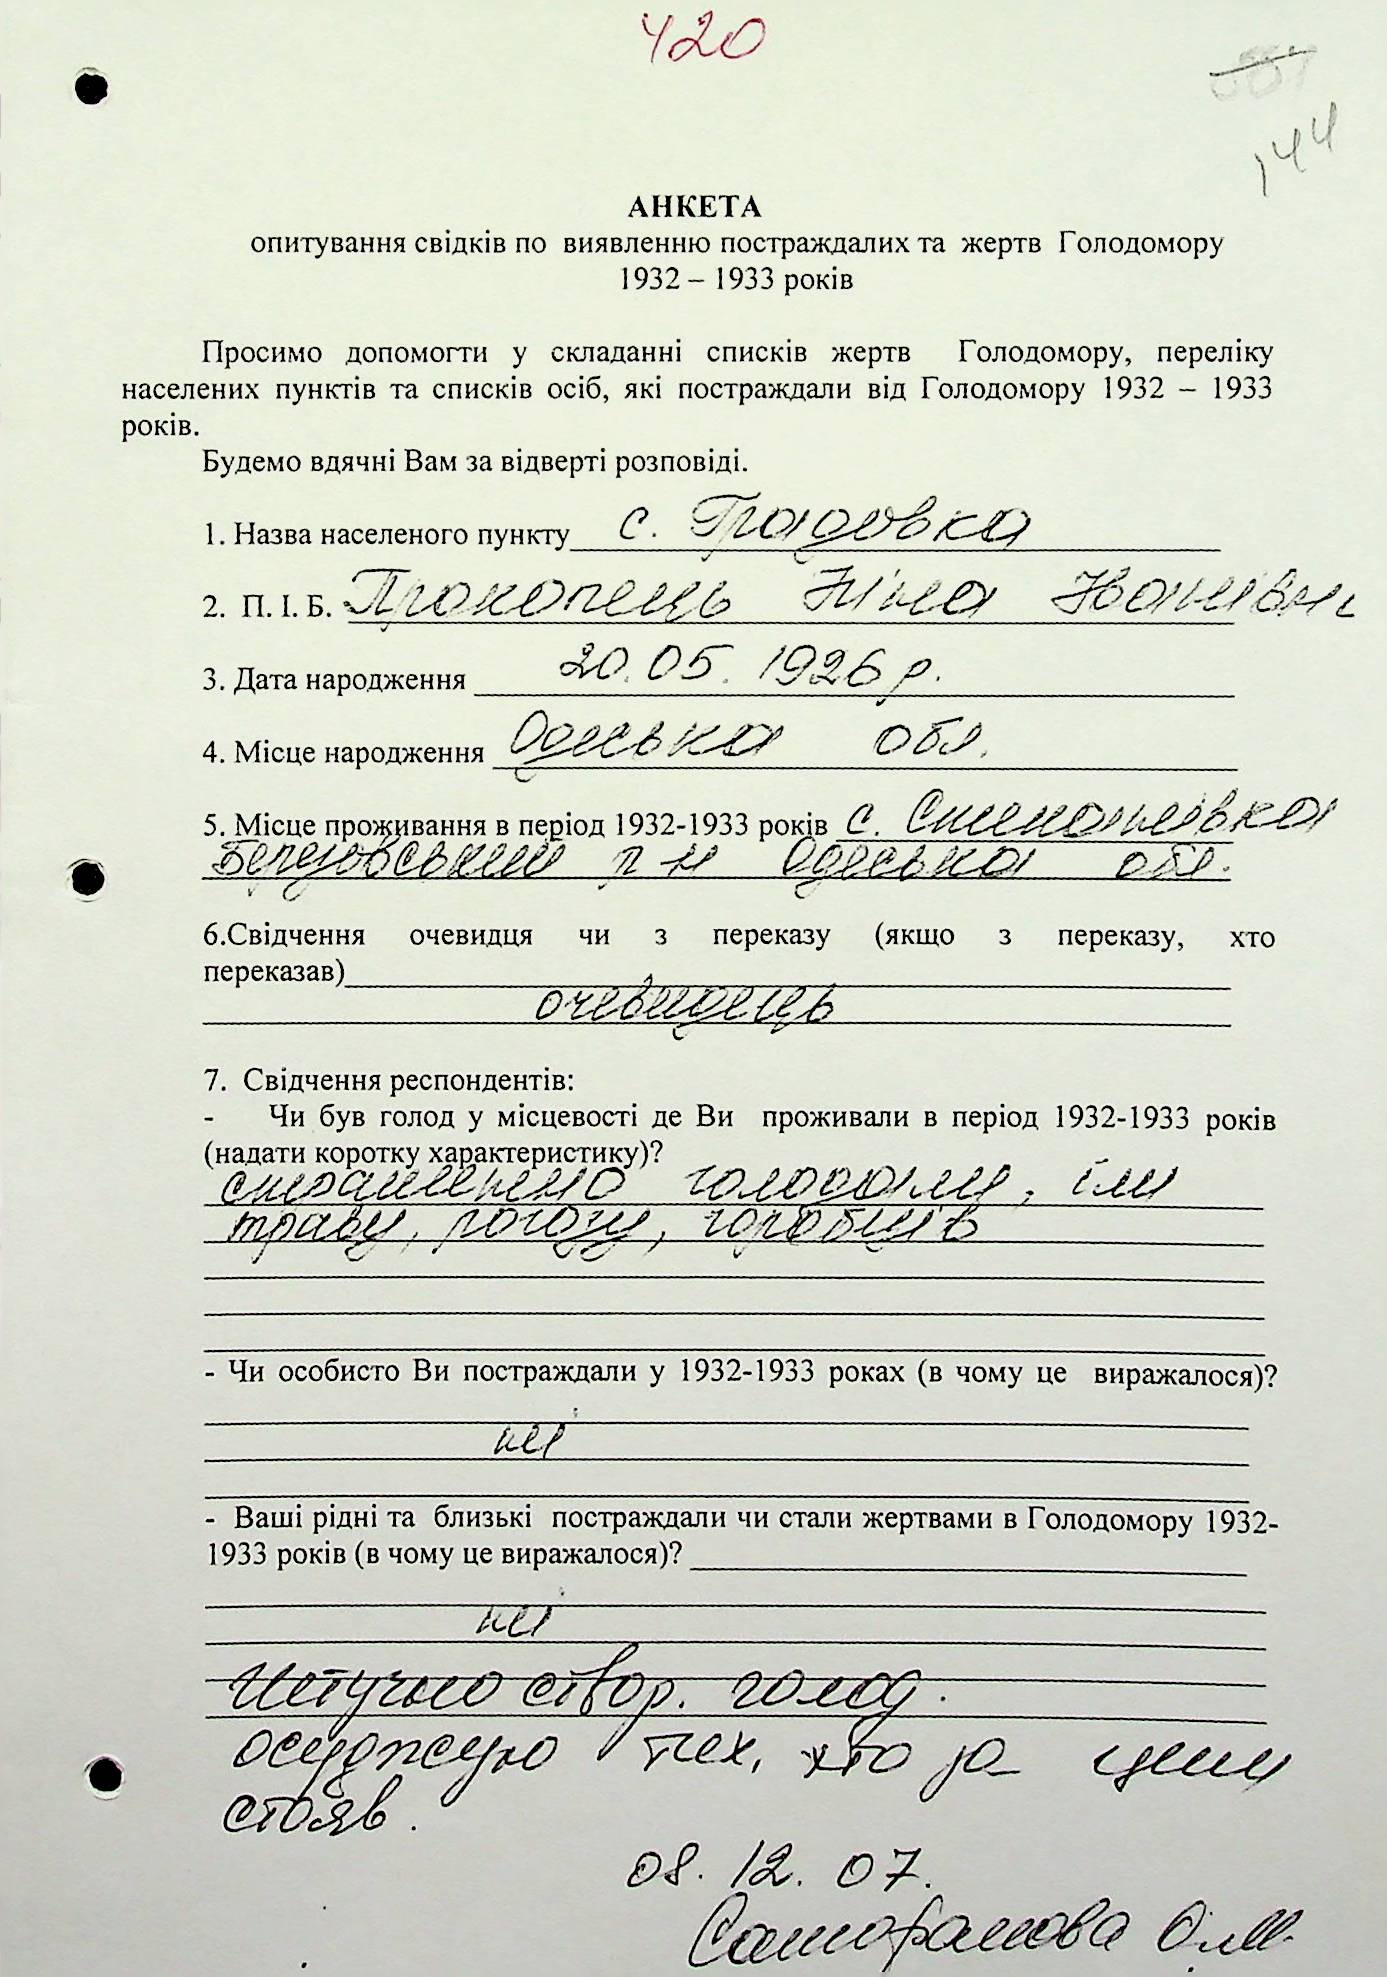 420
144
АНКЕТА
опитування свідків по виявленню постраждалих та жертв Голодомору
1932 – 1933 років
Просимо допомогти у складанні списків жертв Голодомору, переліку
населених пунктів та списків осіб, які постраждали від Голодомору 1932 – 1933
років.
Будемо вдячні Вам за відверті розповіді.
1. Назва населеного пункту с. Градовка
2. П. І. Б. Прокопець Ніна Іванівна
3. Дата народження 20.05.1926 р.
4. Місце народження Одеська обл.
5. Місце проживання в період 1932-1933 років с. Степанівка
Березовський р-н Одеська обл.
6.Свідчення очевидця чи з переказу (якщо з переказу, хто
переказав)
очевидець
7. Свідчення респондентів:
- Чи був голод у місцевості де Ви проживали в період 1932-1933 років
(надати коротку характеристику)?
страшенно голодали, їли
траву, рогозу, горобців
- Чи особисто Ви постраждали у 1932-1933 роках (в чому це виражалося)?
ні
- Ваші рідні та близькі постраждали чи стали жертвами в Голодомору 1932-
1933 років (в чому це виражалося)?
ні
Штучно створ. голод.
осуджую тех, хто за цим
стояв.
08.12.07.
О.М.